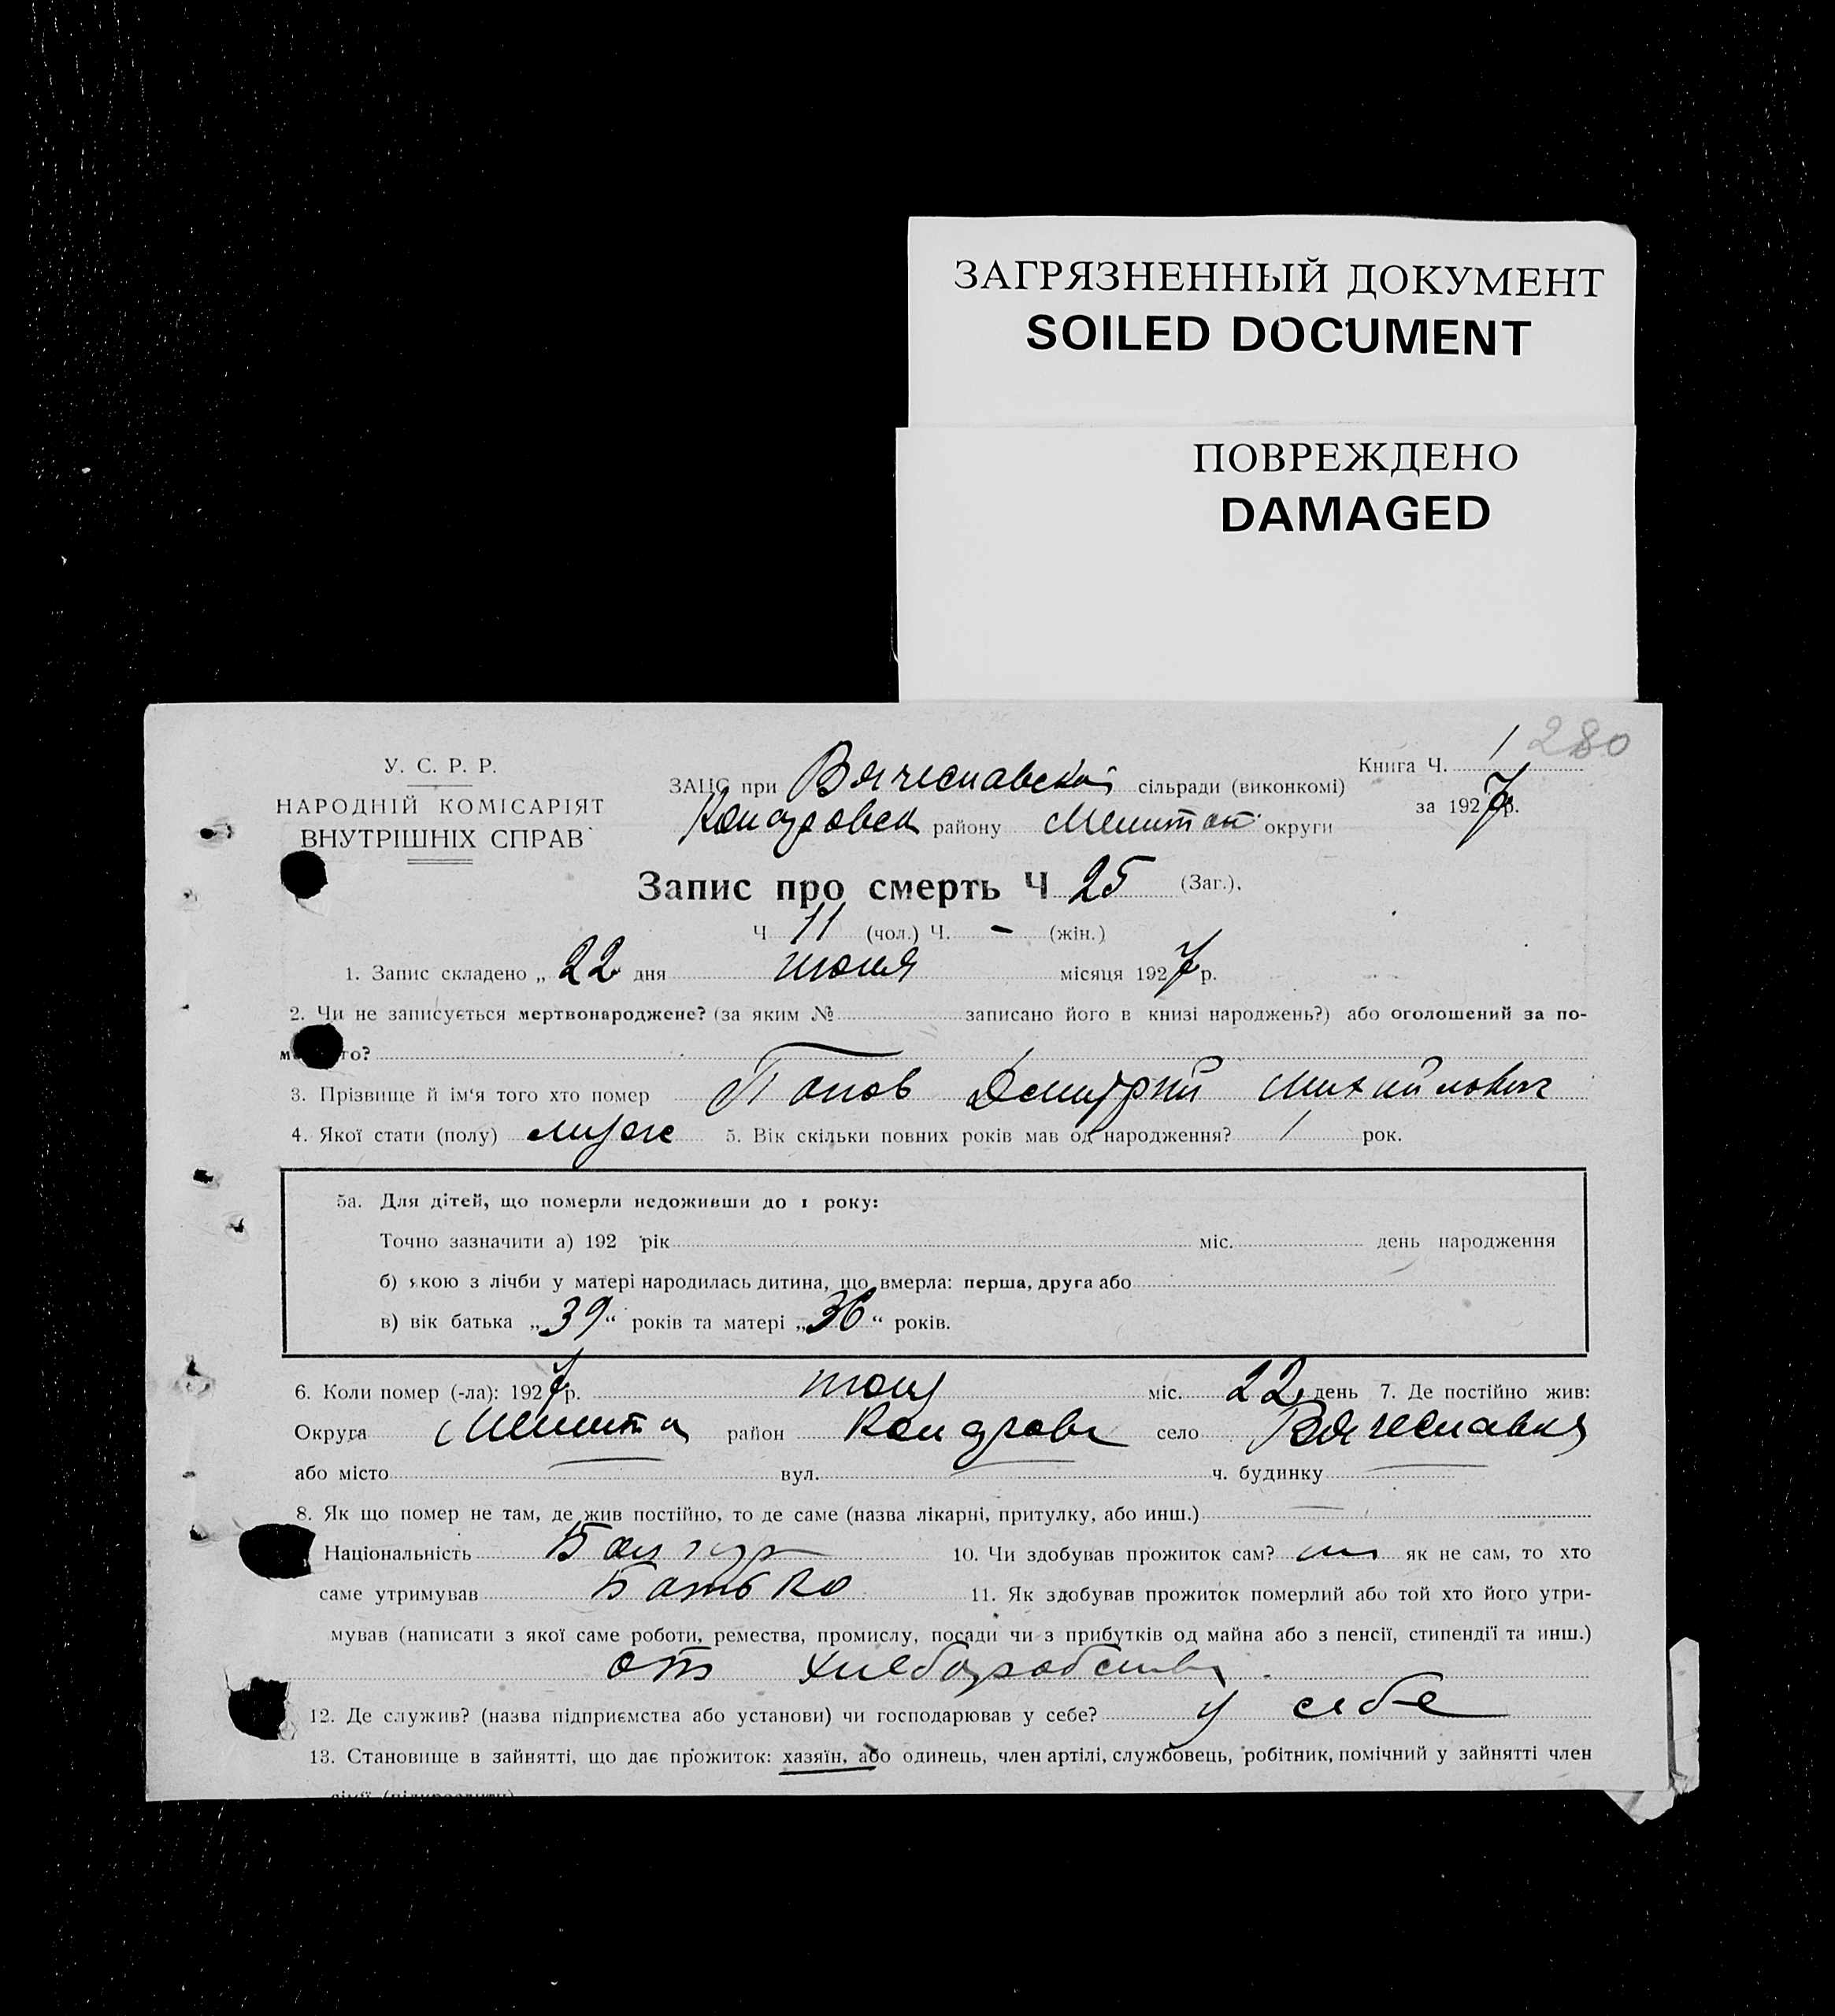 ЗАГРЯЗНЕННЫЙ ДОКУМЕНТ
SOILED DOCUMENT
ПОВРЕЖДЕНО
DAMAGED
280
У. С. Р. Р.
НАРОДНІЙ КОМІСАРІЯТ
ВНУТРІШНІХ СПРАВ
ЗАГС при Вячеславской сільради (виконкомі)
району Мелитоп округи
Книга Ч. 1
за 1927 р.
Запис про смерть Ч 25 (Заг.).
Ч 11 (чол.) Ч. - (жін.)
1. Запис складено „ 22 дня июня місяця 1927 р.
2. Чи не записується мертвонароджене? (за яким № записано його в книзі народжень?) або оголошений за по-
м то?
3. Прізвище й ім'я того хто помер Попов Дмитрий Михайлович
4. Якої стати (полу) муж 5. Вік скільки повних років мав од народження? 1 рок.
5а. Для дітей, що померли недоживши до 1 року:
Точно зазначити а) 192 рік міс. день народження
б) якою з лічби у матері народилась дитина, що вмерла: перша, друга або
в) вік батька „39“ років та матері „36“ років.
6. Коли помер (-ла): 1927 р. міс. 22 день 7. Де постійно жив:
Округа Мелитоп район село Вячеславка
або місто — вул. — ч. будинку —
8. Як що помер не там, де жив постійно, то де саме (назва лікарні, притулку, або инш.) —
Національність Болгар 10. Чи здобував прожиток сам? як не сам, то хто
саме утримував Батько 11. Як здобував прожиток померлий або той хто його утри-
мував (написати з якої саме роботи, ремества, промислу, посади чи з прибутків од майна або з пенсії, стипендії та инш.)
от
12. Де служив? (назва підприємства або установи) чи господарював у себе? у себе
13. Становище в зайнятті, що дає прожиток: хазяїн, або одинець, член артілі, службовець, робітник, помічний у зайнятті член